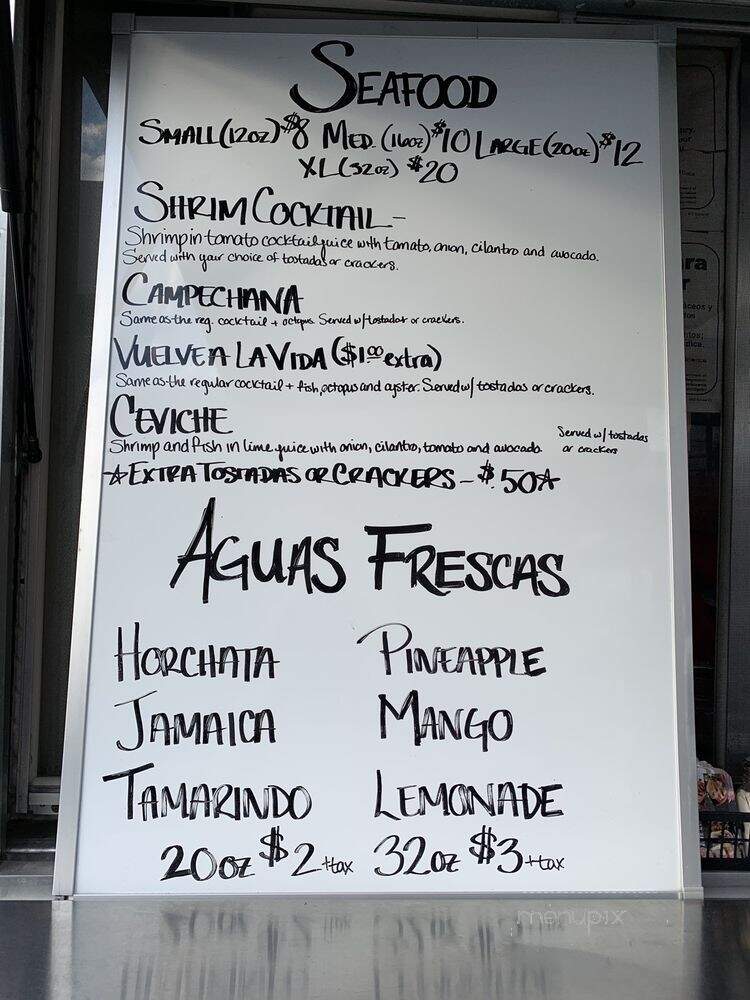 SEAFOOD
SMALL (12oz) $8 MED. (16oz) $10 LARGE (20oz) $12
XL (32oz) $20
SHRIM COCKTAIL -
Shrimp in tomato cocktail juice with tomato, onion, cilantro and avocado.
Served with your choice of tostadas or crackers.
CAMPECHANA
Same as the reg. cocktail + octopus. Served w/ tostadas or crackers.
VUELVE A LA VIDA ($1.00 extra)
Same as the regular cocktail + fish, octopus and oyster. Served w/ tostadas or crackers.
CEVICHE
Shrimp and fish in lime juice with onion, cilantro, tomato and avocado. Served w/ tostadas
or crackers
☆EXTRA TOSTADAS OR CRACKERS - $.50☆
AGUAS FRESCAS
HORCHATA PINEAPPLE
JAMAICA MANGO
TAMARINDO LEMONADE
20oz $2 +tax 32oz $3 +tax
menupix